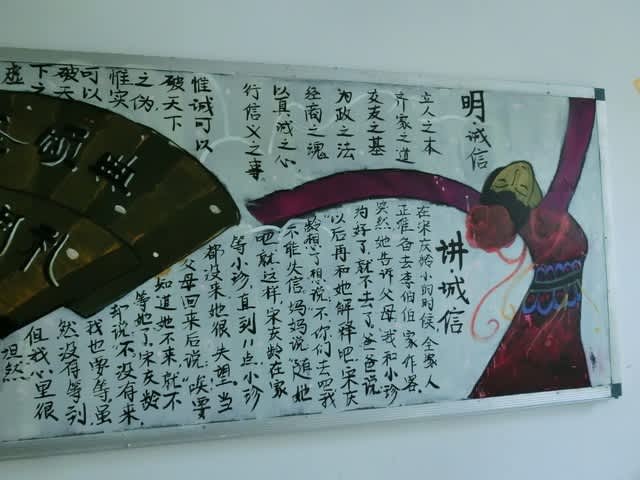 明诚信
立人之本
齐家之道
交友之基
为政之法
经商之魂
以真诚之心
行信义之事
惟诚可以
破天下
之伪
惟实
可以
破天
下之
虚
讲诚信
在宋庆龄小的时候 全家人
正准备去李伯伯家作客
突然她告诉父母"我和小珍
好了,就不去了"爸爸说
"以后再和她解释吧"宋庆
龄想了想说"不你们去 我
不能失信"妈妈说"随她
吧"就这样宋庆龄在家
等小珍,直到八点小珍
都没来她很失望.当
父母回来后说:"唉要
知道她不来就不
等她了"宋庆龄
却说"不,没有来
我也要等虽
然没有等到
但我心里很
坦然